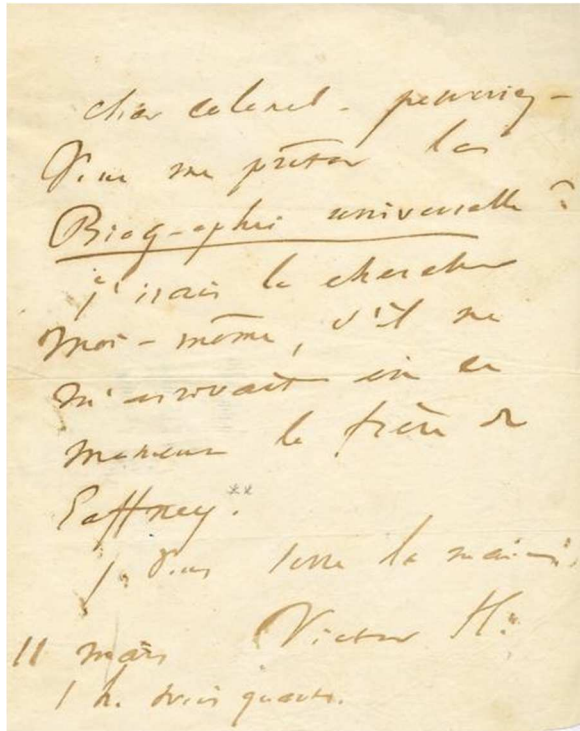 cher colonel - pouvez-
Vous me prêter la
Biographie universelle ?
j'irais la chercher
moi-même, s'il ne
m'arrivait en ce
moment le frère de
Gaffney.**
je vous serre la main.
11 mars Victor H.
1 h. trois quarts.